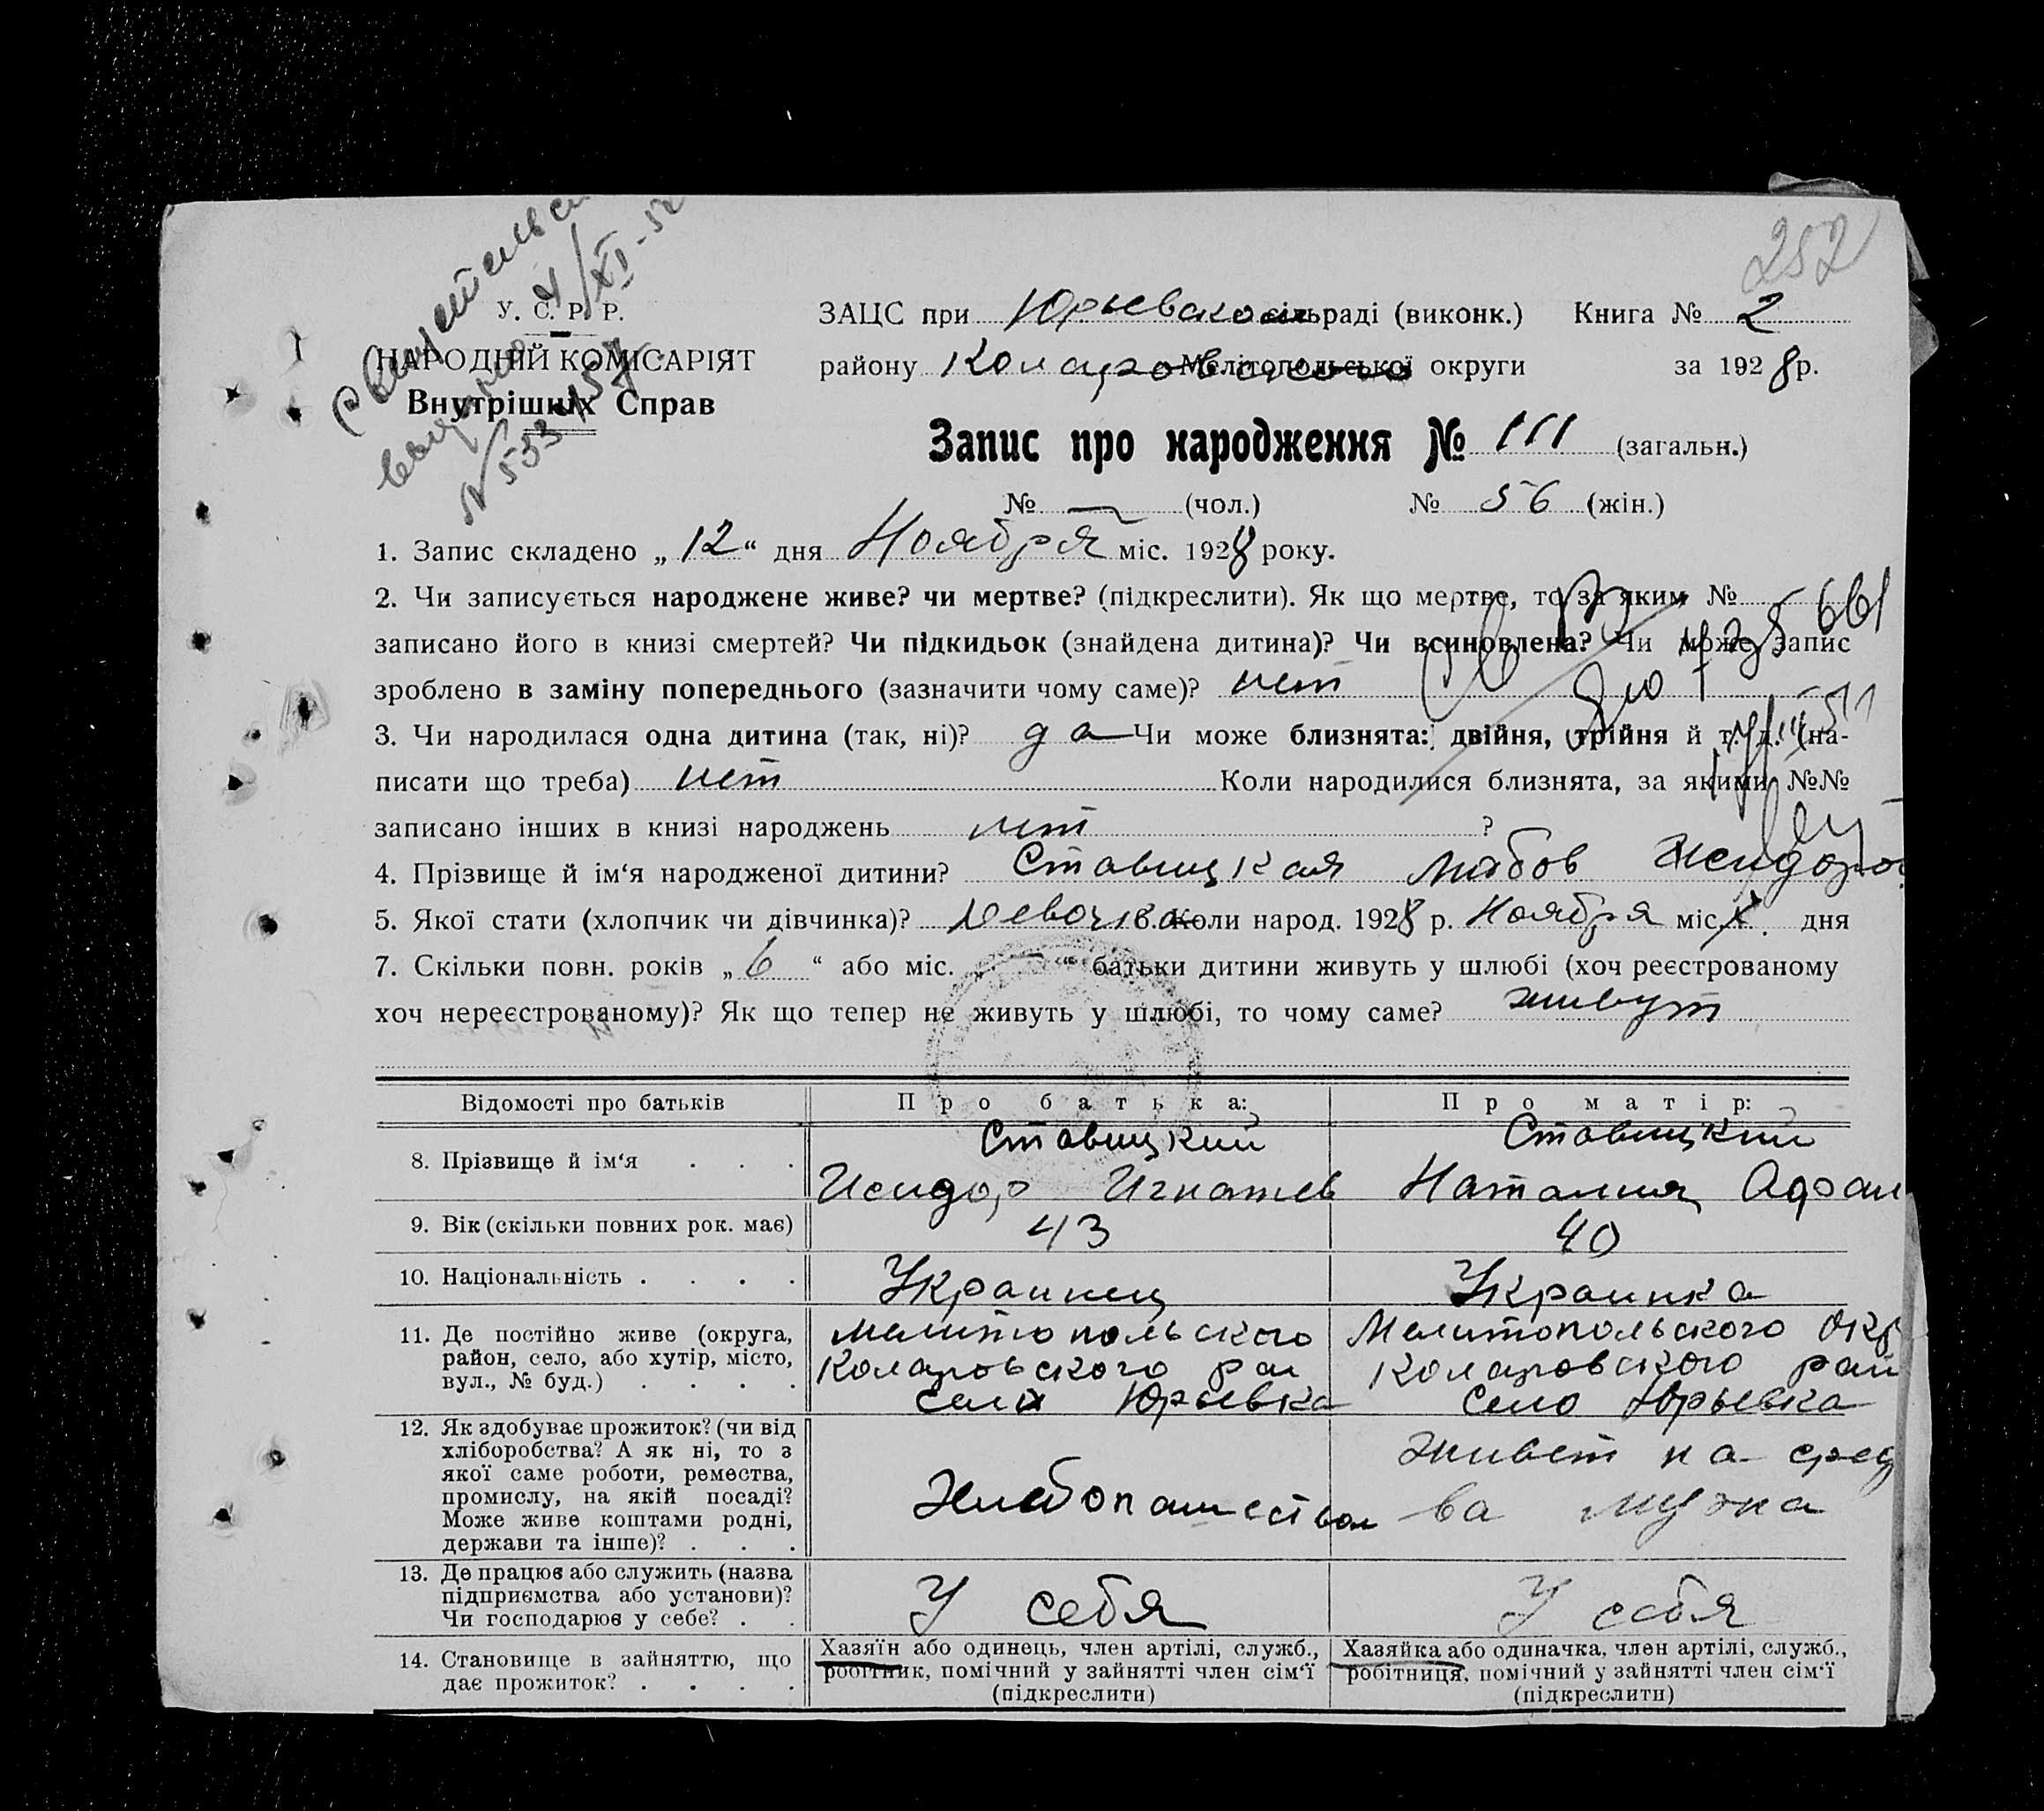 252
У. С. Р. Р.
НАРОДНІЙ КОМІСАРІЯТ
Внутрішніх Справ
ЗАЦС при Юрьевской сільраді (виконк.) Книга № 2
району Коларовского Мелітопольської округи за 1928 р.
Запис про народження № 111 (загальн.)
№ — (чол.) № 56 (жін.)
1. Запис складено „12“ дня Ноября міс. 1928 року.
2. Чи записується народжене живе? чи мертве? (підкреслити). Як що мертве, то за яким №
записано його в книзі смертей? Чи підкидьок (знайдена дитина)? Чи всиновлена? Чи може запис
зроблено в заміну попереднього (зазначити чому саме)? нет
3. Чи народилася одна дитина (так, ні)? да Чи може близнята: двійня, трійня й т. д. (на-
писати що треба) нет Коли народилися близнята, за якими №№
записано інших в книзі народжень нет ?
4. Прізвище й ім‘я народженої дитини? Ставицкая Любов Исидоро
5. Якої стати (хлопчик чи дівчинка)? Девочка 6. Коли народ. 1928 р. Ноября міс. дня
7. Скільки повн. років „6“ або міс. „—“ батьки дитини живуть у шлюбі (хоч реєстрованому
хоч нереєстрованому)? Як що тепер не живуть у шлюбі, то чому саме? живут
Відомості про батьків Про батька: Про матір:
8. Прізвище й ім‘я Ставицкий Исидор Игнатев Ставицкий Наталия
9. Вік (скільки повних рок. має) 43 40
10. Національність Украинец Украинка
11. Де постійно живе (округа,
район, село, або хутір, місто,
вул., № буд.)
Мелитопольского
Коларовского рай
село Юрьевка
Мелитопольского Окр
Коларовского рай
Село Юрьевка
12. Як здобуває прожиток? (чи від
хліборобства? А як ні, то з
якої саме роботи, ремества,
промислу, на якій посаді?
Може живе коштами родні,
держави та інше)?
Хлебопашеством
Живет на сред
ва мужа
13. Де працює або служить (назва
підприємства або установи)?
Чи господарює у себе?
У себя
У себя
14. Становище в зайняттю, що
дає прожиток?
Хазяїн або одинець, член артілі, служб.,
робітник, помічний у зайнятті член сім‘ї
(підкреслити)
Хазяйка або одиначка, член артілі, служб.,
робітниця, помічний у зайнятті член сім‘ї
(підкреслити)